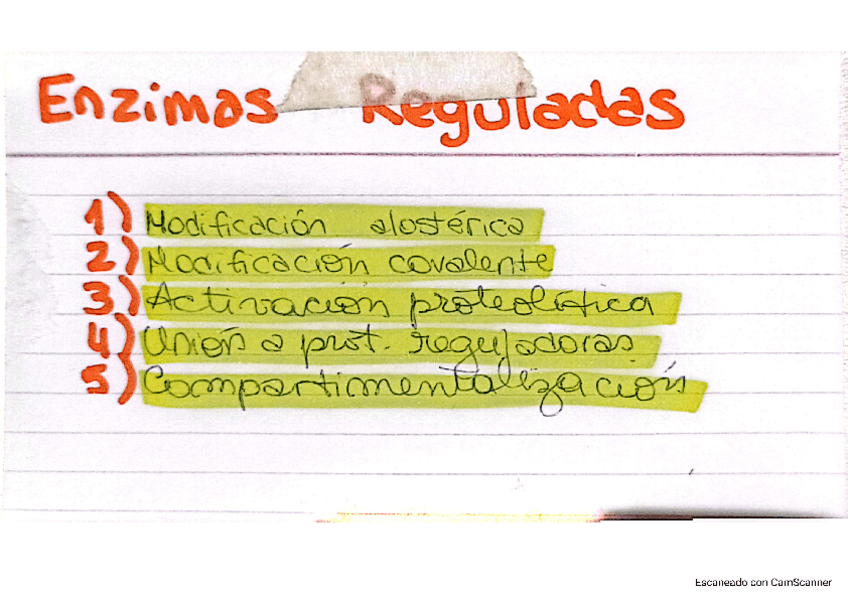 Enzimas Reguladas
1) Modificación alostérica
2) Modificación covalente
3) Activación proteolítica
4) Unión a prot. reguladoras
5) Compartimentalización
Escaneado con CamScanner